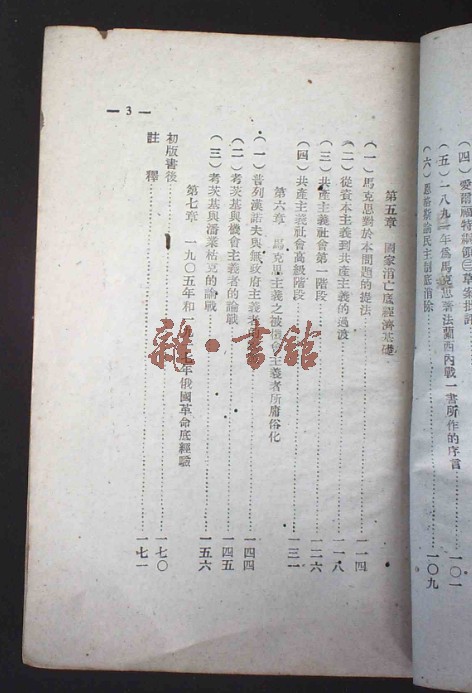 (五)一八九一年爲馬克思著法蘭西內戰一書所作的序言……一〇一
(六)恩格斯論民主制底消除……一〇九
第五章 國家消亡底經濟基礎
(一)馬克思對於本問題的提法……一一四
(二)從資本主義到共產主義的過渡……一一八
(三)共產主義社會第一階段……一二六
(四)共產主義社會高級階段……一三一
第六章 馬克思主義之被機會主義者所庸俗化
(一)普列漢諾夫與無政府主義者……一四四
(二)考茨基與機會主義者的論戰……一四五
(三)考茨基與潘業枯克的論戰……一五六
第七章 一九〇五年和一九一七年俄國革命底經驗
初版書後……一七〇
註釋……一七一
— 3 —
雜·書館